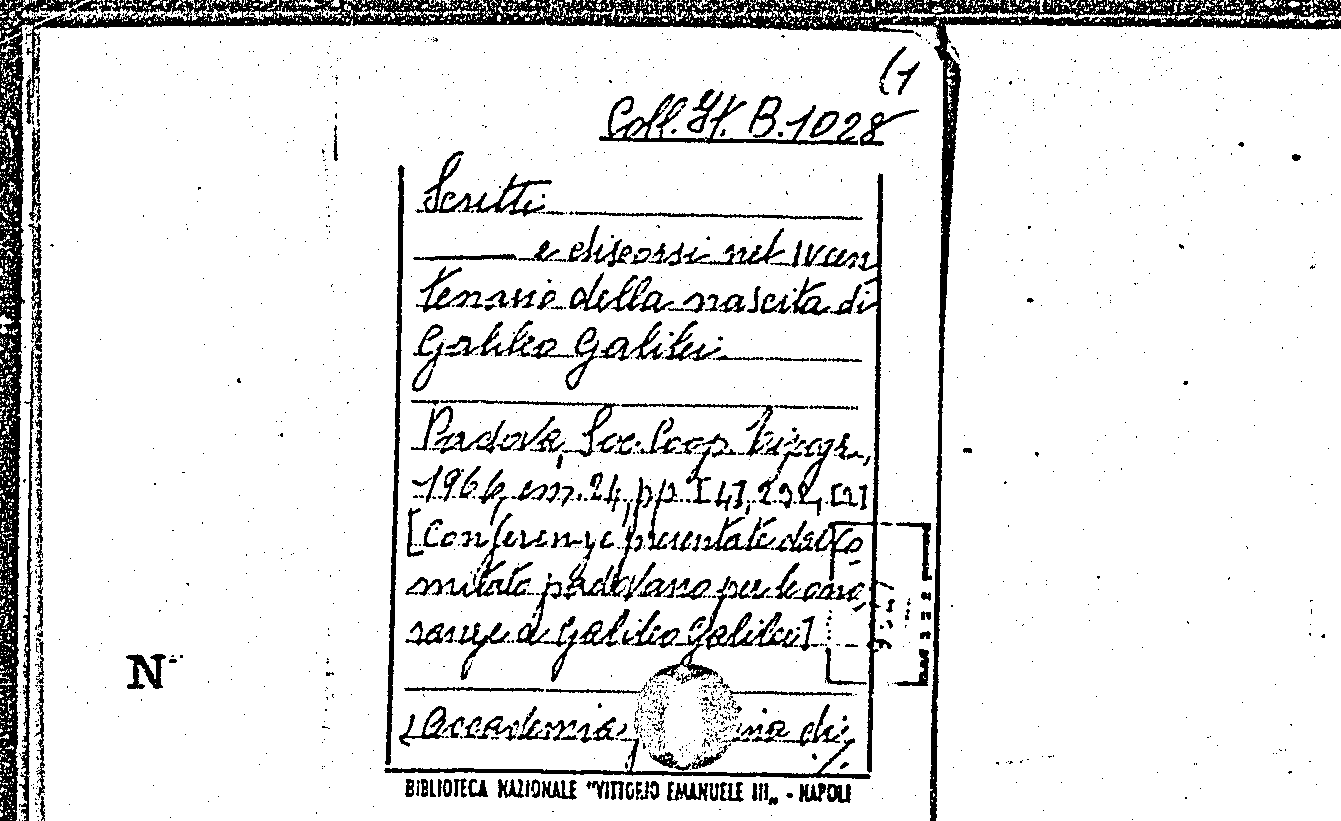 (1
Coll. It. B. 1028
Scritti
e discorsi nel IV cen
tenario della nascita di
Galileo Galilei
Padova, Soc. Coop. Tipogr.,
1966, cm. 24, pp. [4], 292, [2]
[Conferenze presentate dal Co
mitato padovano per le ono
ranze a Galileo Galilei]
(Accademia di
./.
N
BIBLIOTECA NAZIONALE "VITTORIO EMANUELE III" - NAPOLI